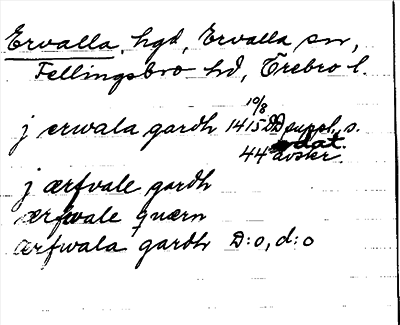 Ervalla, hgd, Ervalla sn,
Fellingsbro hd, Örebro l.
10/8
j ærwala gardh 1415 DD suppl. s.
44 odat. avskr.
j ærfvale gardh
ærfwale quærn
ærfwala gardh D:o, d:o